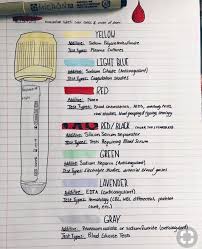 Vacutainer with color codes & order of draw
YELLOW
Additive: Sodium Polyanetholsulfonate
Test Types: Plasma Cultures
LIGHT BLUE
Additive: Sodium Citrate (Anticoagulant)
Test Types: Coagulation Studies
RED
Additive: None
Test Types: Blood chemistries, AIDS, serology tests,
RED/BLACK
Additive: Silicon Serum Separator
Test Types: Tests Requiring Blood Serum
GREEN
Additive: Sodium Heparin (Anticoagulant)
Test Types: Electrolyte studies, arterial blood gases
LAVENDER
Additive: EDTA (anticoagulant)
Test Types: Hematology (CBC, WBC differential, platelet
count, etc.)
GRAY
Additive: Potassium oxalate or sodium fluoride (anticoagulant)
Test Types: Blood Glucose Tests